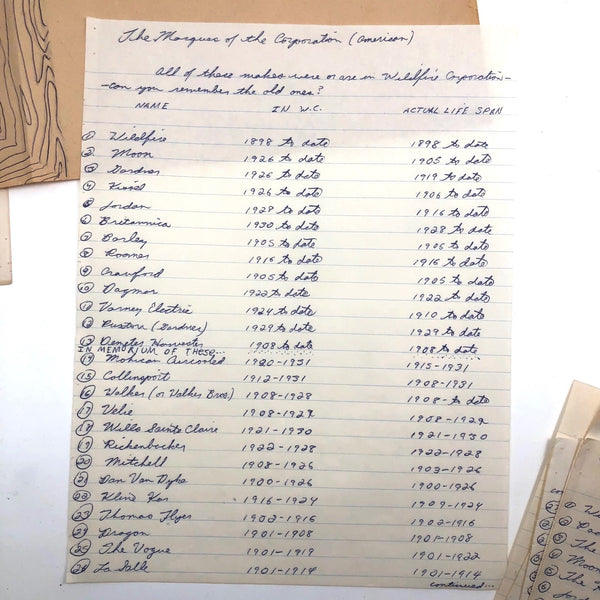 The Marques of the Corporation (American)
All of these makes were or are in Wildfire Corporation-
-can you remember the old ones?
NAME IN W.C. ACTUAL LIFE SPAN
① Wildfire 1898 to date 1898 to date
② Moon 1926 to date 1905 to date
③ Gardner 1926 to date 1919 to date
④ Kissel 1926 to date 1906 to date
⑤ Jordan 1928 to date 1916 to date
⑥ Britannica 1930 to date 1928 to date
⑦ Borley 1905 to date 1905 to date
⑧ Roamer 1916 to date 1916 to date
⑨ Crawford 1905 to date 1905 to date
⑩ Dagmar 1922 to date 1922 to date
⑪ Varney Electric 1924 to date 1910 to date
⑫ (Gardner) 1929 to date 1929 to date
⑬ Demeter Harvester 1908 to date 1908 to date
IN MEMORIUM OF THESE...
⑭ Mohican Aircooled 1920-1931 1915-1931
⑮ Collinsport 1912-1931 1908-1931
⑯ Walker (or Walker Bros.) 1908-1928 1908-to date
⑰ Velie 1908-1929 1908-1929
⑱ Wills Sainte Claire 1921-1930 1921-1930
⑲ Rickenbacker 1922-1928 1922-1928
⑳ Mitchell 1908-1926 1903-1926
㉑ Dan Van Dyke 1900-1926 1900-1926
㉒ Kline Kar 1916-1924 1909-1924
㉓ Thomas Flyer 1902-1916 1902-1916
㉔ Dragon 1901-1908 1901-1908
㉕ The Vogue 1901-1919 1901-1922
㉖ La Salle 1901-1914 1901-1914
continued...